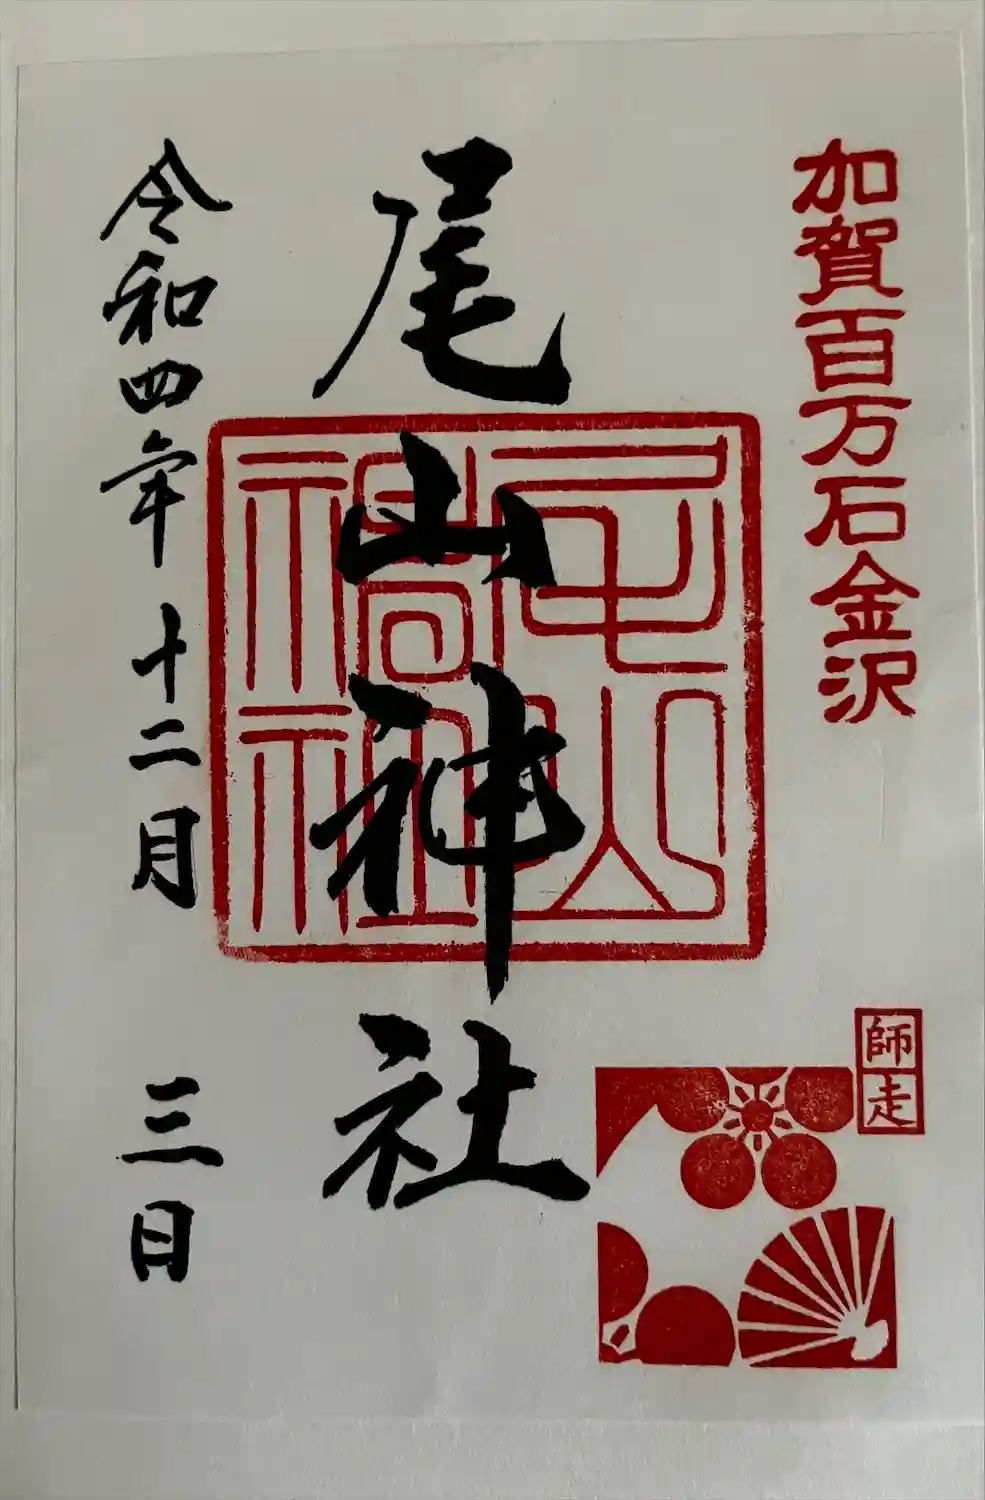 加賀百万石金沢
師走
尾山神社
尾山神社
令和四年十二月三日